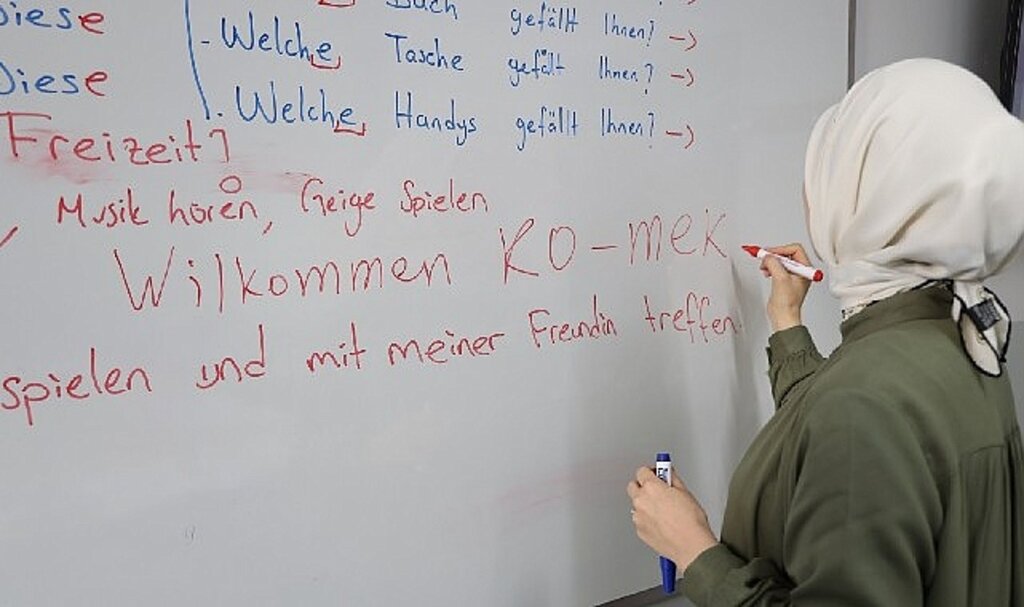 Diese Buch gefällt Ihnen? →
Diese - Welche Tasche gefällt Ihnen? →
. Welche Handys gefällt Ihnen? →
Freizeit?
Musik hören, Geige Spielen
Wilkommen KO-mek
spielen und mit meiner Freundin treffen.